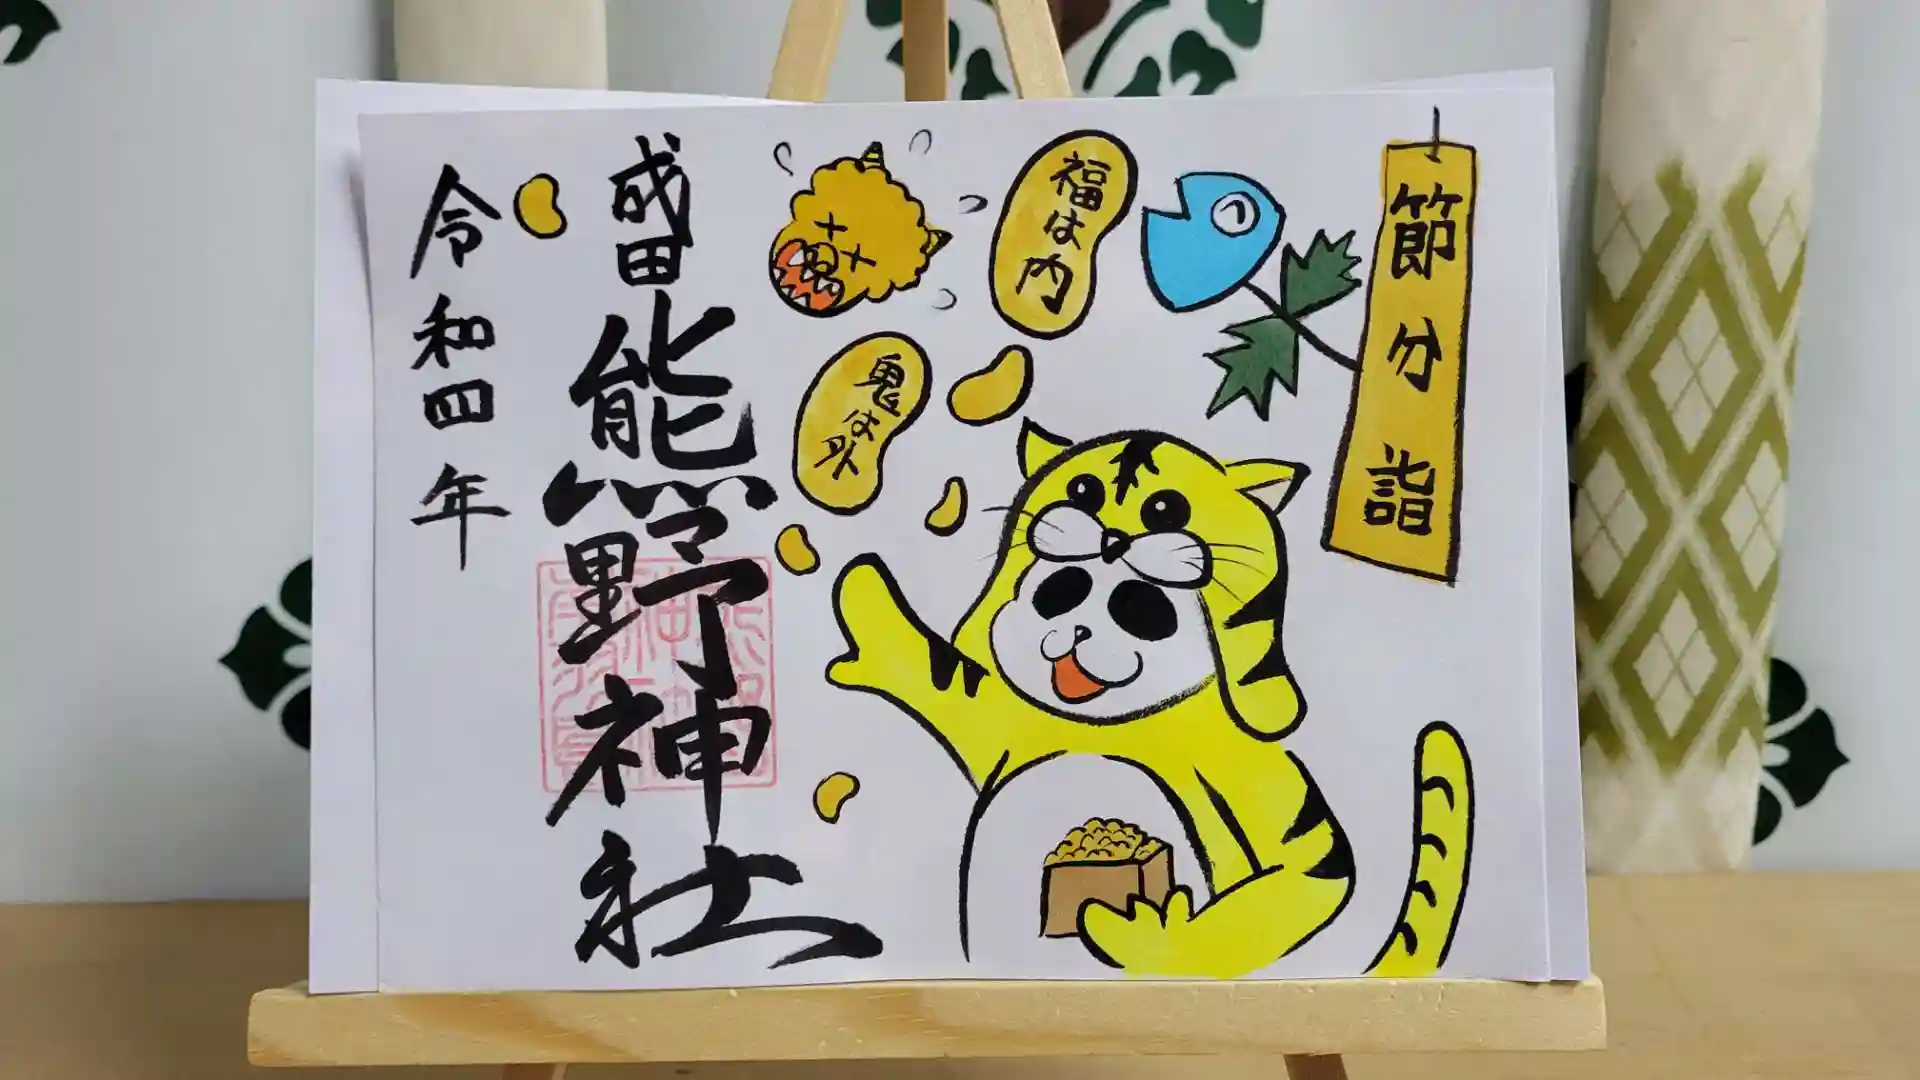 節分詣
福は内
鬼は外
成田
熊野神社
令和四年